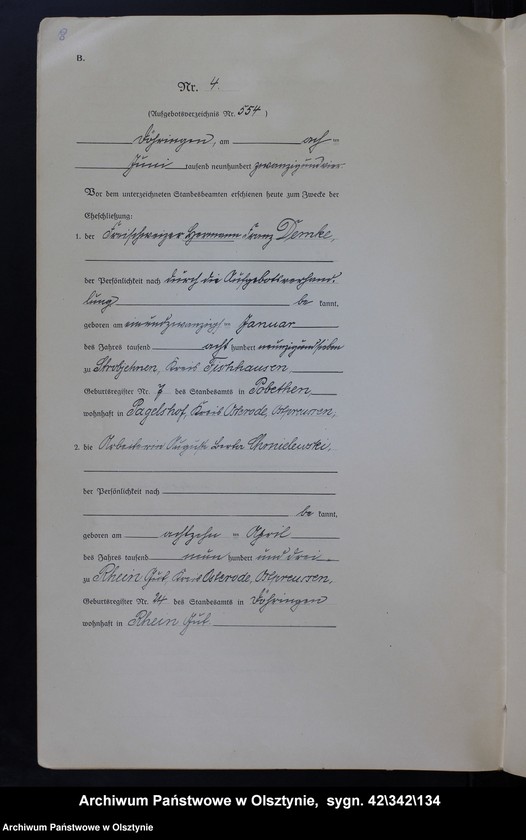 8
B.
Nr. 4
(Aufgebotsverzeichnis Nr. 554 )
Döhringen, am ach ten
Juni tausend neunhundert zwanzigundvier
Vor dem unterzeichneten Standesbeamten erschienen heute zum Zwecke der
Eheschließung:
1. der Freischweizer Hermann Franz Demke,
der Persönlichkeit nach durch die Aufgebotsverhand-
lung be kannt,
geboren am einundzwanzigsten Januar
des Jahres tausend acht hundert neunzigundsieben
zu Kreis Fischhausen,
Geburtsregister Nr. 7 des Standesamts in Pobethen,
wohnhaft in Pagelshof, Kreis Osterode, Ostpreussen,
2. die Arbeiterin Auguste Berta Chonielewski,
der Persönlichkeit nach
be kannt,
geboren am achtzehn ten April
des Jahres tausend neun hundert und drei
zu Rhein Gut, Kreis Osterode, Ostpreussen,
Geburtsregister Nr. 24 des Standesamts in Döhringen
wohnhaft in Rhein Gut
Archiwum Państwowe w Olsztynie, sygn. 42\342\134
Archiwum Państwowe w Olsztynie